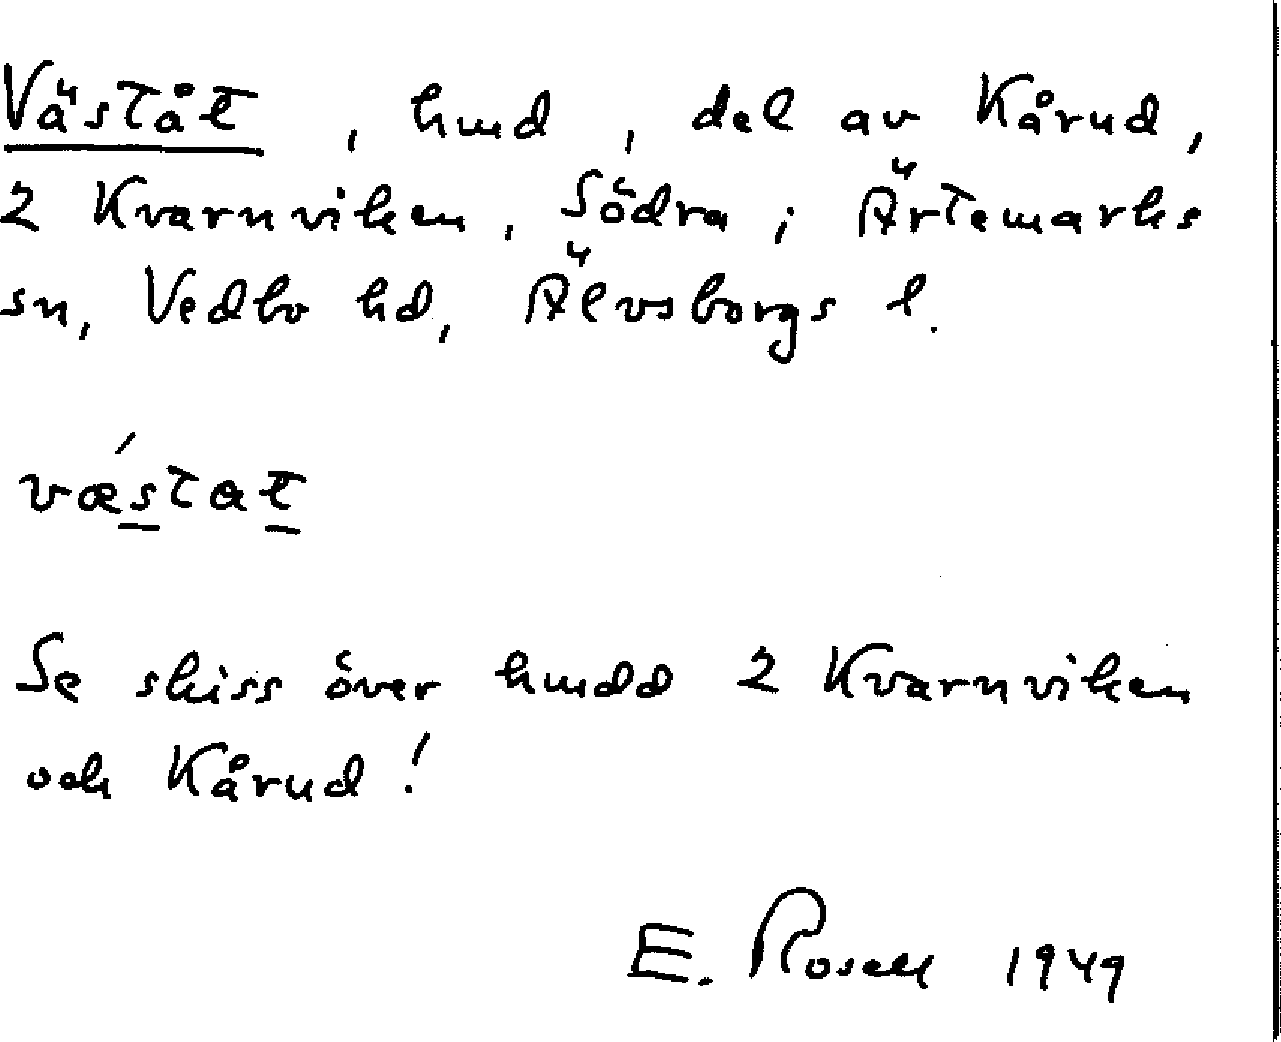 Väståt, hmd, del av Kårud,
2 Kvarnviken, Södra i Ärtemarks
sn, Vedbo hd, Älvsborgs l.
vǽstat
Se skiss över hmdd 2 Kvarnviken
och Kårud!
E. Rosell 1949